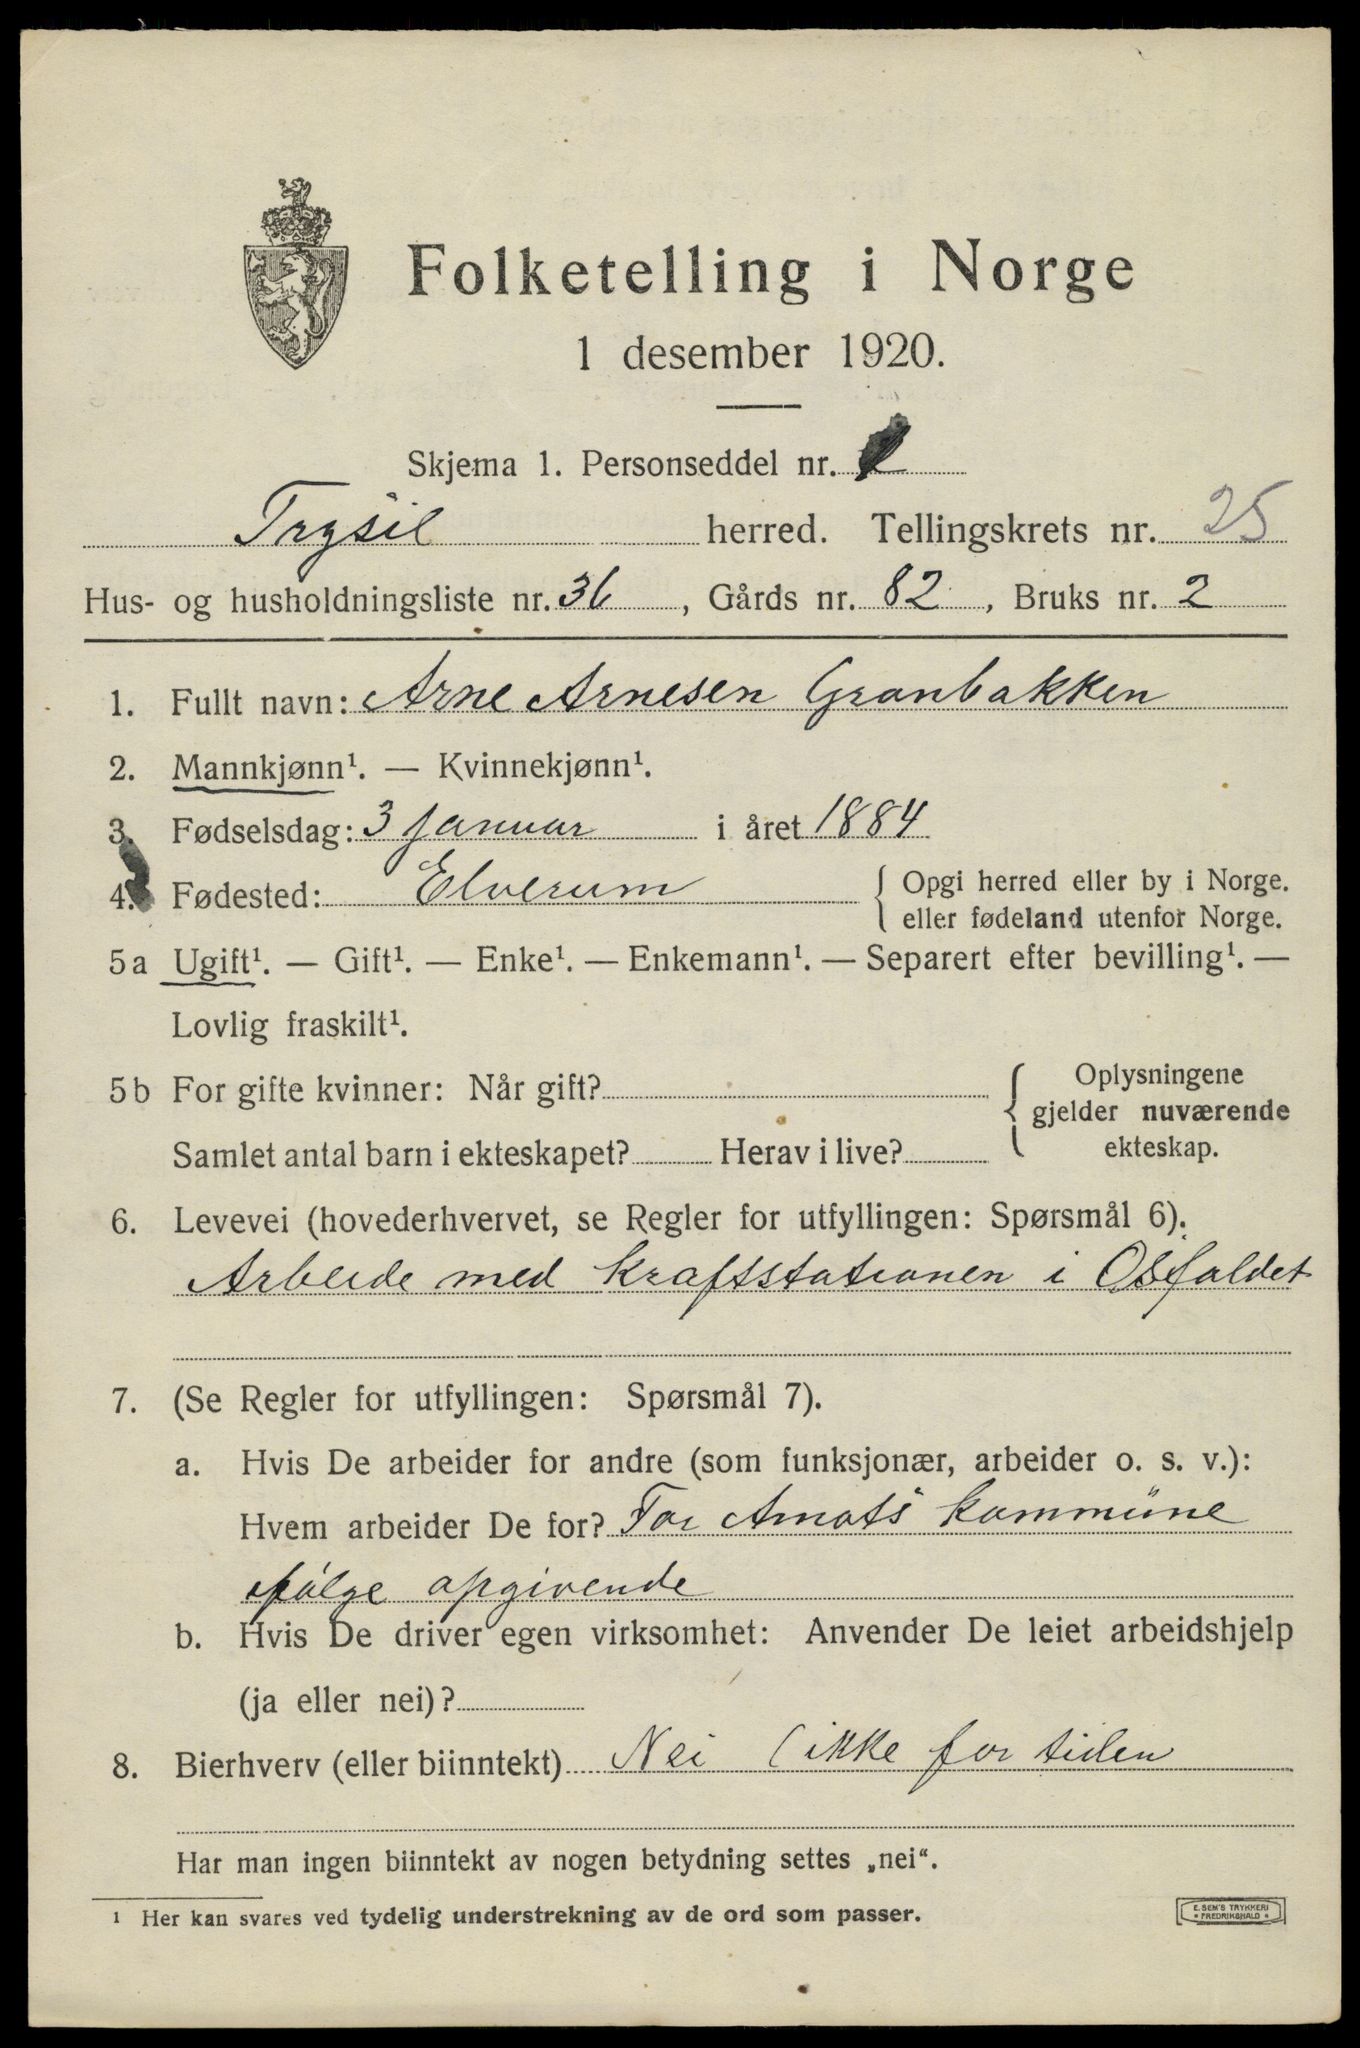 Folketelling i Norge
1 desember 1920.
Skjema 1. Personseddel nr.
Trysil herred. Tellingskrets nr. 25
Hus- og husholdningsliste nr. 36, Gårds nr. 82, Bruks nr. 2
1. Fullt navn: Arne Arnesen Granbakken
2. Mannkjønn¹. — Kvinnekjønn¹.
3. Fødselsdag: 3 januar i året 1884
4. Fødested: Elverum { Opgi herred eller by i Norge.
eller fødeland utenfor Norge.
5a Ugift¹. — Gift¹. — Enke¹. — Enkemann¹. — Separert efter bevilling¹. —
Lovlig fraskilt¹.
5b For gifte kvinner: Når gift? { Oplysningene
gjelder nuværende
ekteskap.
Samlet antal barn i ekteskapet? Herav i live?
6. Levevei (hovederhvervet, se Regler for utfyllingen: Spørsmål 6).
Arbeide med kraftstationen i Osfaldet
7. (Se Regler for utfyllingen: Spørsmål 7).
a. Hvis De arbeider for andre (som funksjonær, arbeider o. s. v.):
Hvem arbeider De for? For Amots kommune
følge opgivende
b. Hvis De driver egen virksomhet: Anvender De leiet arbeidshjelp
(ja eller nei)?
8. Bierhverv (eller biinntekt) Nei (ikke for tiden
Har man ingen biinntekt av nogen betydning settes „nei“.
¹ Her kan svares ved tydelig understrekning av de ord som passer.
E. SEM'S TRYKKERI
* FREDRIKSHALD *